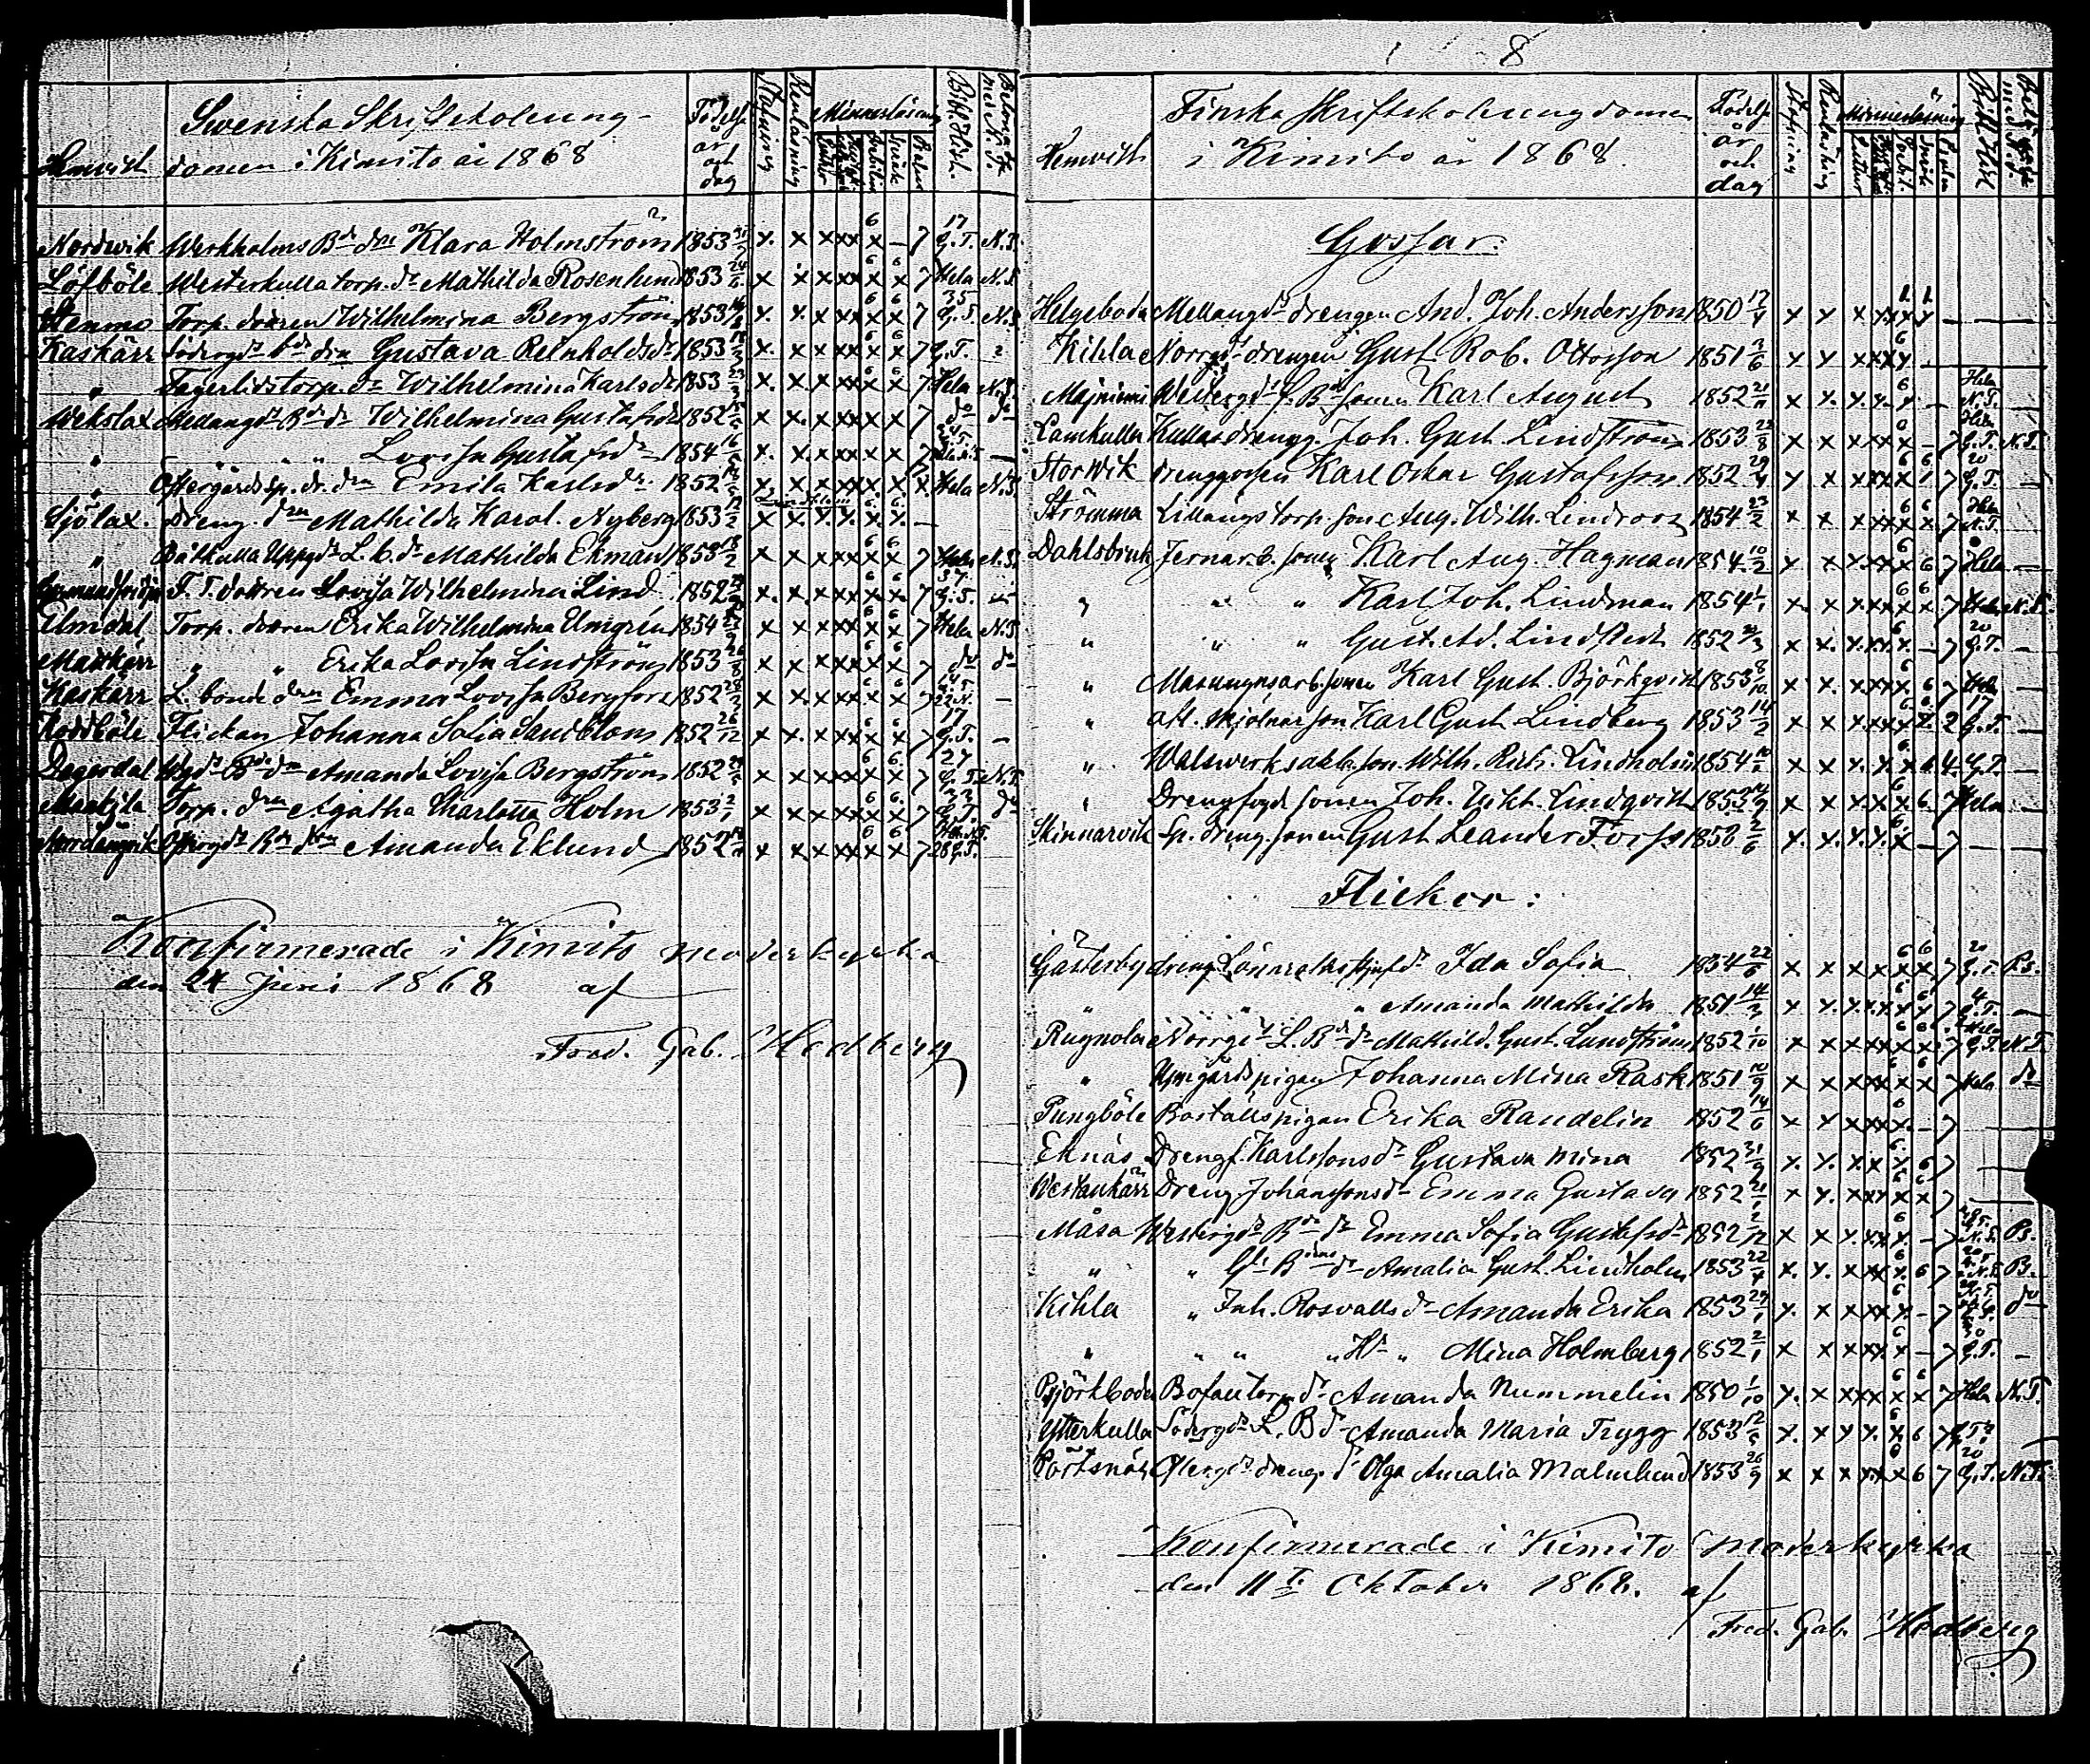 8
Swenska Skriftskoleung-
Hemvist domen i Kimito år 1868
Födelse år och dag
Stafning Renläsning Minnesläsning Bibl. Hist. Belönade med N. T.
Nordwik Werkholms Bde dr Klara Holmström 1853 x. x x xx x – 7 17 G. T. N. T.
Löfböle Westerkulla torp. dr Mathilda Rosenlund 1853 x x x xx x x 7 Hela N. T.
Torp. dotren Wilhelmina Bergström 1853 x. x. x xx x x 7 35 G. T. N. T.
Kaskärr Södergds bde drn Gustava Reinholdsdr 1853 x. x x xx x x 7 G. T.
„ Fagerlids torp. dr Wilhelmina Karlsdr 1853 23/3 x. x. x xx x x 7 Hela N. T.
Wekslax Mellangds Bde dr Wilhelmina Gustafsdr 1852 x x. x xx x x 7 do do
„ „ „ Lovisa Gustafsdr 1854 x. x. x xx x x 7 –
„ Östergårds sp. dr. drn Emila Karlsdr 1852 x x x xx x. x x Hela N. T.
Sjölax. Dreng. drn Mathilda Karol. Nyberg 1853 x x. x. x. x x. –
„ Båtkulla Uppgds L. b. dr Mathilda Ekman 1853 18/2 x x x xx x x 7 Hela N. T.
F. T. dotren Lovisa Wilhelmina Lind 1852 x. x. x xx x x. 7 37 G. T. –
Elmdal Torp. dotren Erika Wilhelmina Elmgrén 1854 x x. x xx x x 7 Hela N. T.
Maxkärr „ „ Erika Lovisa Lindström 1853 26/8 x x x xx x x 7 do do
Kaskärr L. bonde drn Emma Lovisa Bergfors 1852 28/3 x x x xx x x 7 –
Flickan Johanna Sofia Sandblom 1852 26/12 x x. x xx x x 7 17 G. T. –
Dagerdal Nygds Bde drn Amanda Lovisa Bergström 1852 x x x xx x x 7 27 G. T. N. T.
Maatjla Torp. drn Agatha Charlotta Holm 1853 2/1 x x x xx x x 7 G. T. do
Norrlångvik Östergds Bde drn Amanda Eklund 1852 x x x xx x x 7 28 G. T.
Konfirmerade i Kimito moderkyrka
den 24 Juni 1868 af
Fred. Gab. Hedberg
Finska Skriftskoleungdomen
Hemvist i Kimito år 1868.
Födelse år och dag
Stafning Renläsning Minnesläsning Bibl. Hist. Belönade med N. T.
Gossar:
Helgeboda Mellangds drengen And. Joh. Andersson 1850 x x x xx x x – – –
Kihla Norrgds drengen Gust. Rob. Ottosson 1851 3/6 x x x xx x – –
Majniemi Westergds f. Bde sonen Karl August 1852 x x. x. x. x – Hela N. T.
Lamkulla Kullas drengg. Joh. Gust. Lindström 1853 x x x xx x – 7 G. T. N. T.
Storwik drenggossen Karl Oskar Gustafsson 1852 29/4 x x x xx x 1 7 20 G. T. –
Strömma Lillängs torp. son Aug. Wilh. Lindroos 1854 23/2 x x x xx x x. 7 Hela N. T.
Dahlsbruk Jernarb. sonen Karl Aug. Hagman 1854 10/2 x x x. xx x 6 7 Hela –
„ „ „ Karl Joh. Lindman 1854 1/1 x. x x. xx x x 7 Hela N. T.
„ „ „ Gust. Ad. Lindstedt 1852 x x. x. x. x. – 7 20 G. T. –
„ Masungnsarb. sonen Karl Gust. Björkqvist 1853 8/10 x x. x. xx x 6 7 Hela –
„ afl. mjolnar son Karl Gust. Lindberg 1853 14/2 x x x. xx x x 2 17 G. T. –
„ Walsverksakla. son Wilh. Rich. Lindholm 1854 x x x. x. x 6 4. G. T. –
„ Drengfogd sonen Joh. Vikt. Lindqvist 1853 x x x. xx x 6 7 Hela –
Skinnarvik Sp. dreng. sonen Gust. Leander Forss 1853 x. x. x. x. x – 7 –
Flickor:
Gästerby dreng. Lönnroths styf dr Ida Sofia 1854 22/5 x x x xx x x 7 20 G. T. Ps.
„ „ „ Amanda Mathilda 1851 14/3 x x. x. xx x x 7 4 G. T. –
Rugnola Norrgds L. Bde dr Mathild. Gust. Lundström 1852 1/10 x x x xx x x. 7 G. T. N. T.
„ Uppgårds pigan Johanna Mina Rask 1851 10/9 x x x xx x x 7 Hela do
Pungböle Boställspigan Erika Randelin 1852 14/6 x x x xx x. – 7
Eknäs Drengf. Karlssons dr Gustava Mina 1852 21/9 x. x. x. x x 6 7
Westankärr Dreng Johanssons dr Emma Gustava 1852 x x. x xx x x 7 –
Måsa Westergds Bde dr Emma Sofia Gustafsdr 1852 2/12 x x x. xx x. – 7 N. T. Ps.
„ „ Gl. Bdens dr Amalia Gust. Lindholm 1853 22/4 x. x. x xx x. 6 7 N. T. B.
Kihla „ Inh. Rosvalls dr Amanda Erika 1853 x. x x xx x. – 7 do
„ „ „ „ Hs „ Mina Holmberg 1852 2/1 x x x xx. x – 7 G. T. –
Björkboda Bofall torp. dr Amanda Nummelin 1850 1/10 x. x x xx x x 7 Hela N. T.
Ytterkulla Södergds L. B dr Amanda Maria Trygg 1853 x. x x x. x 6 7 G. T.
Pörtsnäs Östergds dreng. dr Olga Amalia Malmlund 1853 26/9 x x x xx x 6 7 20 G. T. N. T.
Konfirmerade i Kimito moderkyrka
den 11te Oktober 1868. af
Fred. Gab. Hedberg